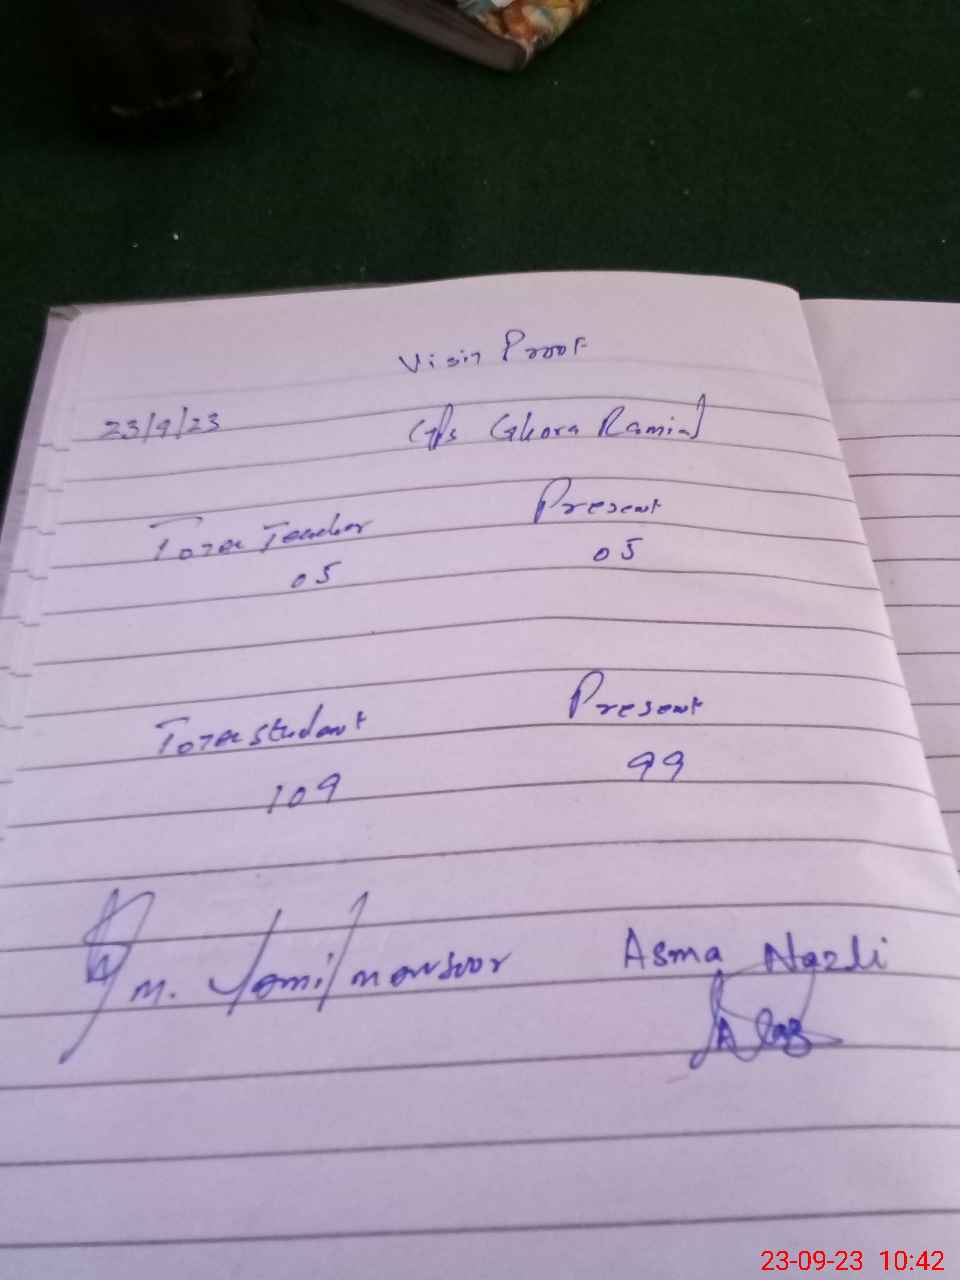 Visit Proof
23/9/23
G/s Ghora Ramial
Total Teacher Present
05 05
Total Student Present
109 99
M. Jamil mansoor Asma Nazli
23-09-23 10:42